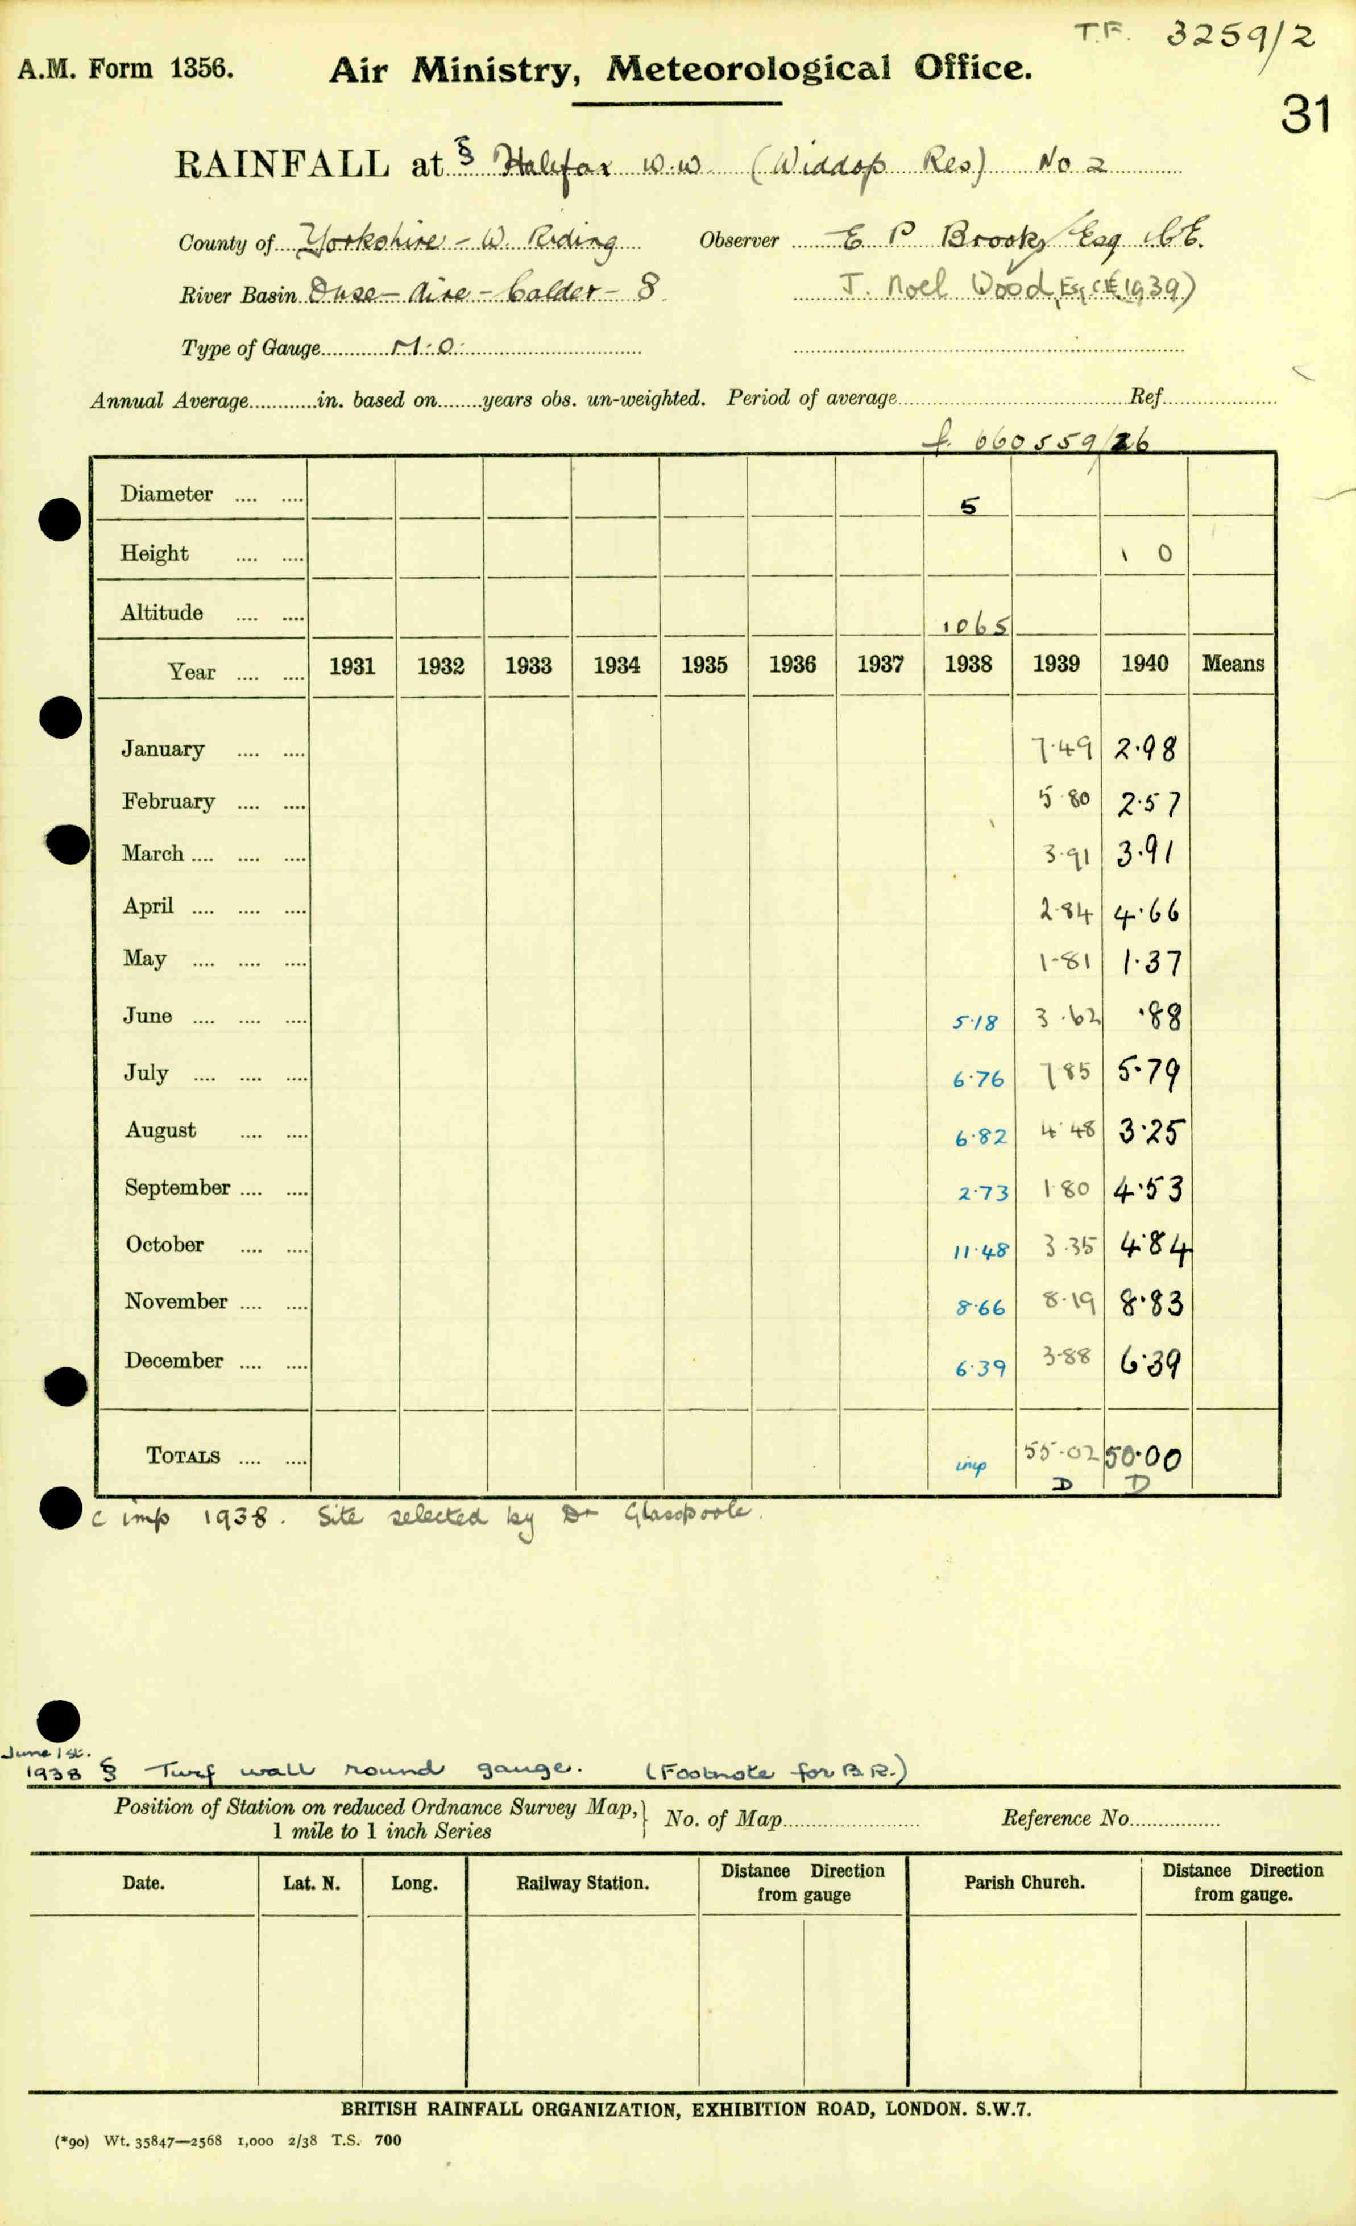 T.F. 3259/2
A.M. Form 1356. Air Ministry, Meteorological Office.
31
RAINFALL at § Halifax W.W. (Widdop Res) No 2
County of Yorkshire - W. Riding Observer E P Brook Esq C.E.
River Basin Ouse - Aire - Calder - 8 J. Noel Wood, Esq C.E. (1939)
Type of Gauge M.O.
Annual Average in. based on years obs. un-weighted. Period of average Ref.
f. 660559/26
Diameter .... .... 5
Height .... .... 1 0
Altitude .... .... 1065
Year .... .... 1931 1932 1933 1934 1935 1936 1937 1938 1939 1940 Means
January .... .... 7.49 2.98
February .... .... 5.80 2.57
March .... .... .... 3.91 3.91
April .... .... .... 2.84 4.66
May .... .... .... 1.81 1.37
June .... .... .... 5.18 3.62 .88
July .... .... .... 6.76 7.85 5.79
August .... .... 6.82 4.48 3.25
September .... .... 2.73 1.80 4.53
October .... .... 11.48 3.35 4.84
November .... .... 8.66 8.19 8.83
December .... .... 6.39 3.88 6.39
TOTALS .... .... imp 55.02 50.00
D D
c imp 1938. Site selected by Dr Glasspoole.
June 1st.
1938 § Turf wall round gauge. (Footnote for B.R.)
Position of Station on reduced Ordnance Survey Map, No. of Map Reference No.
1 mile to 1 inch Series
Date. Lat. N. Long. Railway Station. Distance Direction from gauge Parish Church. Distance Direction from gauge.
BRITISH RAINFALL ORGANIZATION, EXHIBITION ROAD, LONDON. S.W.7.
(*90) Wt. 35847—2568 1,000 2/38 T.S. 700